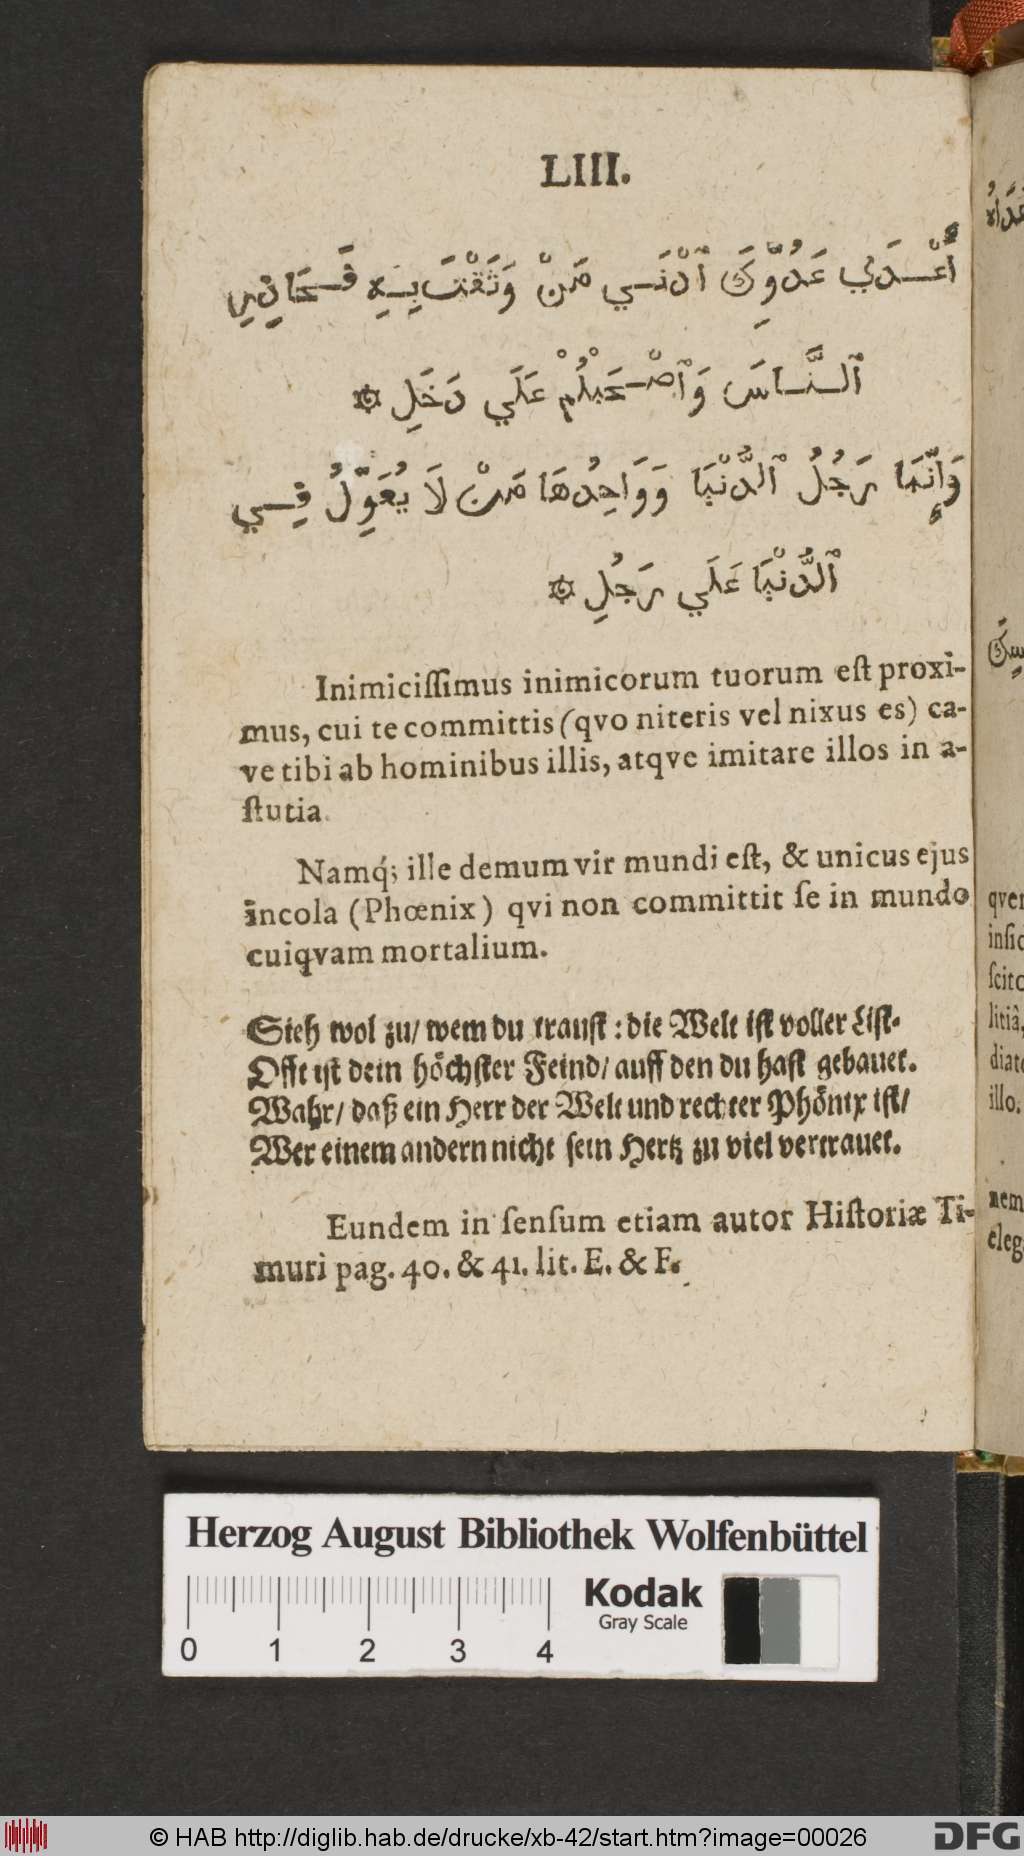 LIII.
أَعْدَي عَدُوِّكَ ٱدْنَي مَنْ وَثَقْتَ بِهِ فَحَاذِرِ
ٱلنَّاسَ وَٱصْحَبْهُمْ عَلَي دَخَلِ ۞
وَإِنَّمَا رَجُلُ ٱلدُّنْيَا وَوَاحِدُهَا مَنْ لَا يُعَوِّلُ فِي
ٱلدُّنْيَا عَلَي رَجُلِ ۞
Inimiciſſimus inimicorum tuorum eſt proxi-
mus, cui te committis (qvo niteris vel nixus es) ca-
ve tibi ab hominibus illis, atqve imitare illos in a-
ſtutia.
Namq́; ille demum vir mundi eſt, & unicus ejus
incola (Phœnix) qvi non committit ſe in mundo
cuiqvam mortalium.
Sieh wol zu/ wem du trauſt: die Welt iſt voller Liſt.
Offt iſt dein höchſter Feind/ auff den du haſt gebauet.
Wahr/ daß ein Herr der Welt und rechter Phönix iſt/
Wer einem andern nicht ſein Hertz zu viel vertrauet.
Eundem in ſenſum etiam autor Hiſtoriæ Ti-
muri pag. 40. & 41. lit. E. & F.
qver
litiâ,
illo.
nem
eleg
Herzog August Bibliothek Wolfenbüttel
0 1 2 3 4
Kodak
Gray Scale
© HAB http://diglib.hab.de/drucke/xb-42/start.htm?image=00026
DFG